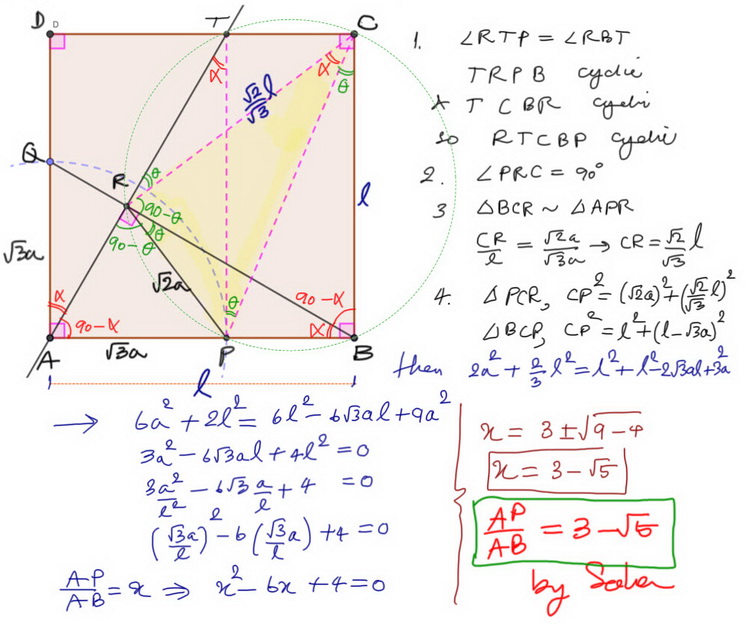 D D T C
α α θ
√2/√3 l
Q
R θ
90-θ
90-θ θ
l
√3a √2a
α θ 90-α
90-α α
A √3a P B
l
1. ∠RTP = ∠RBT
TRPB cyclic
∧ TCBR cyclic
so RTCBP cyclic
2. ∠PRC = 90°
3 △BCR ~ △APR
CR/l = √2a/√3a → CR = √2/√3 l
4. △PCR, CP² = (√2a)² + (√2/√3 l)²
△BCP, CP² = l² + (l-√3a)²
then 2a² + 2/3 l² = l² + l² - 2√3al + 3a²
→ 6a² + 2l² = 6l² - 6√3al + 9a²
3a² - 6√3al + 4l² = 0
3a²/l² - 6√3 a/l + 4 = 0
(√3a/l)² - 6(√3a/l) + 4 = 0
AP/AB = x ⇒ x² - 6x + 4 = 0
x = 3 ± √9-4
x = 3 - √5
AP/AB = 3 - √5
by